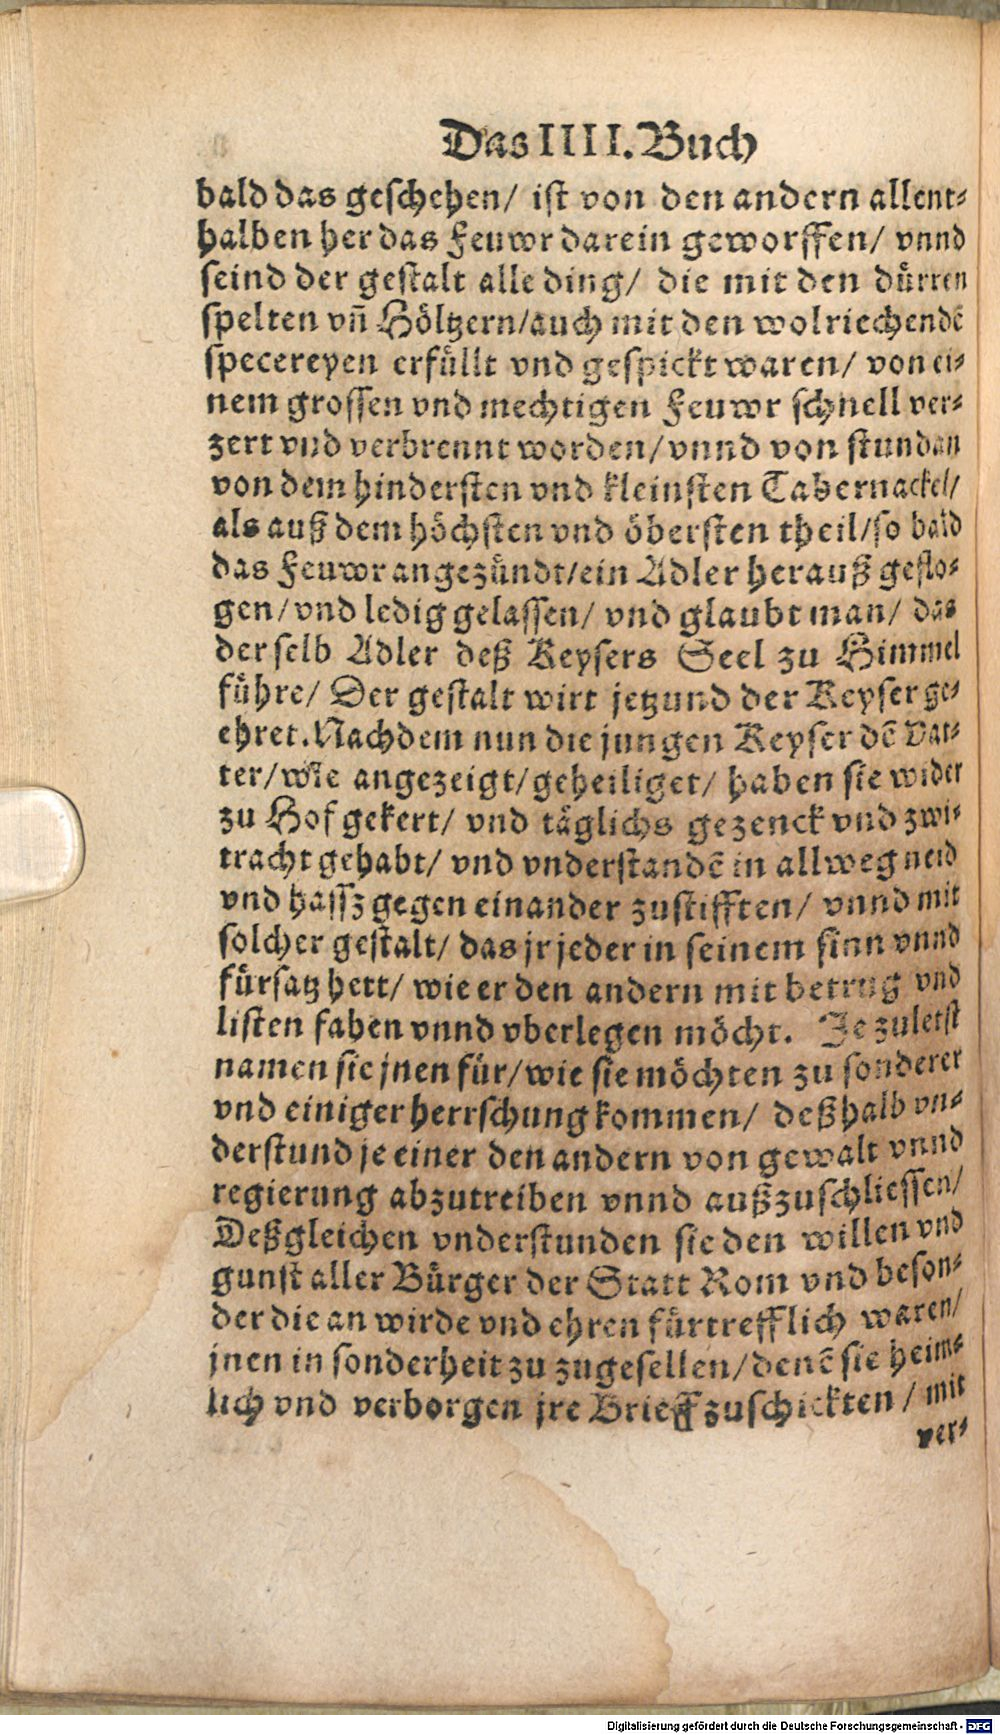 Das IIII. Buch
bald das geschehen/ ist von den andern allent⸗
halben her das Feuwr darein geworffen/ vnnd
seind der gestalt alle ding/ die mit den dürren
spelten vñ Höltzern/auch mit den wolriechendẽ
specereyen erfüllt vnd gespickt waren/ von ei⸗
nem grossen vnd mechtigen Feuwr schnell ver⸗
zert vnd verbrennt worden/ vnnd von stundan
von dem hindersten vnd kleinsten Tabernackel/
als auß dem höchsten vnd öbersten theil/so bald
das Feuwr angezündt/ein Adler herauß geflo⸗
gen/ vnd ledig gelassen/ vnd glaubt man/ das
der selb Adler deß Keysers Seel zu Himmel
führe/ Der gestalt wirt jetzund der Keyser ge⸗
ehret. Nachdem nun die jungen Keyser dẽ Vat⸗
ter/wie angezeigt/geheiliget/ haben sie wider
zu Hof gekert/ vnd täglichs gezenck vnd zwi⸗
tracht gehabt/ vnd vnderstandẽ in allweg neid
vnd hassz gegen einander zustifften/ vnnd mit
solcher gestalt/ das jr jeder in seinem sinn vnnd
fürsatz hett/ wie er den andern mit betrug vnd
listen fahen vnnd vberlegen möcht. Je zuletst
namen sie jnen für/wie sie möchten zu sonderer
vnd einiger herrschung kommen/ deßhalb vn⸗
derstund je einer den andern von gewalt vnnd
regierung abzutreiben vnnd außzuschliessen/
Deßgleichen vnderstunden sie den willen vnd
gunst aller Bürger der Statt Rom vnd beson⸗
der die an wirde vnd ehren fürtrefflich waren/
jnen in sonderheit zu zugesellen/denẽ sie heim⸗
lich vnd verborgen jre Brieff zuschickten / mit
ver⸗
Digitalisierung gefördert durch die Deutsche Forschungsgemeinschaft - DFG